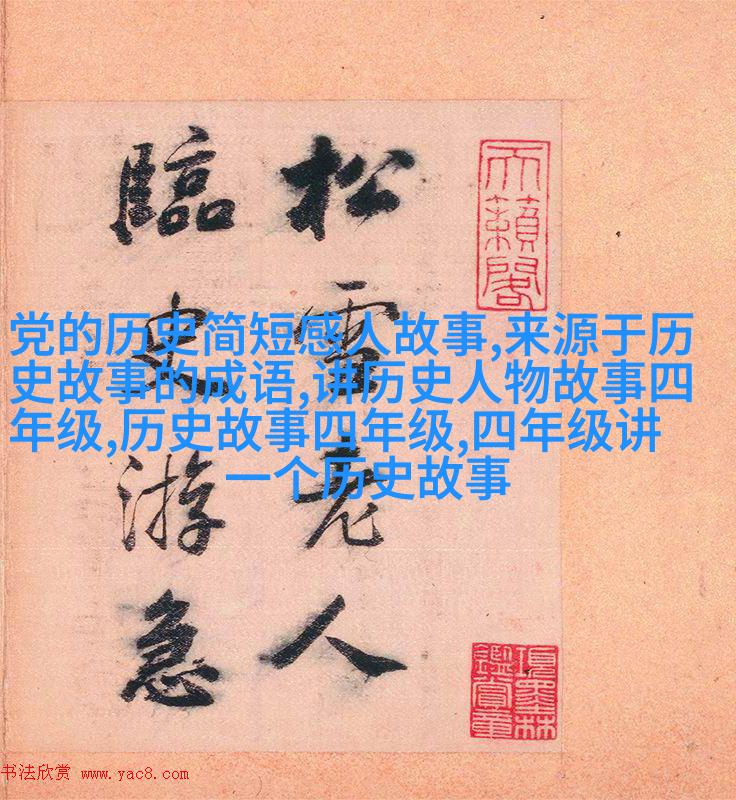 党的历史简短感人故事,来源于历
史故事的成语,讲历史人物故事四
年级,历史故事四年级,四年级讲
一个历史故事
松雪老人
臨史游急
天籟閣
項墨林
鑑賞章
书法欣赏 www.yac8.com